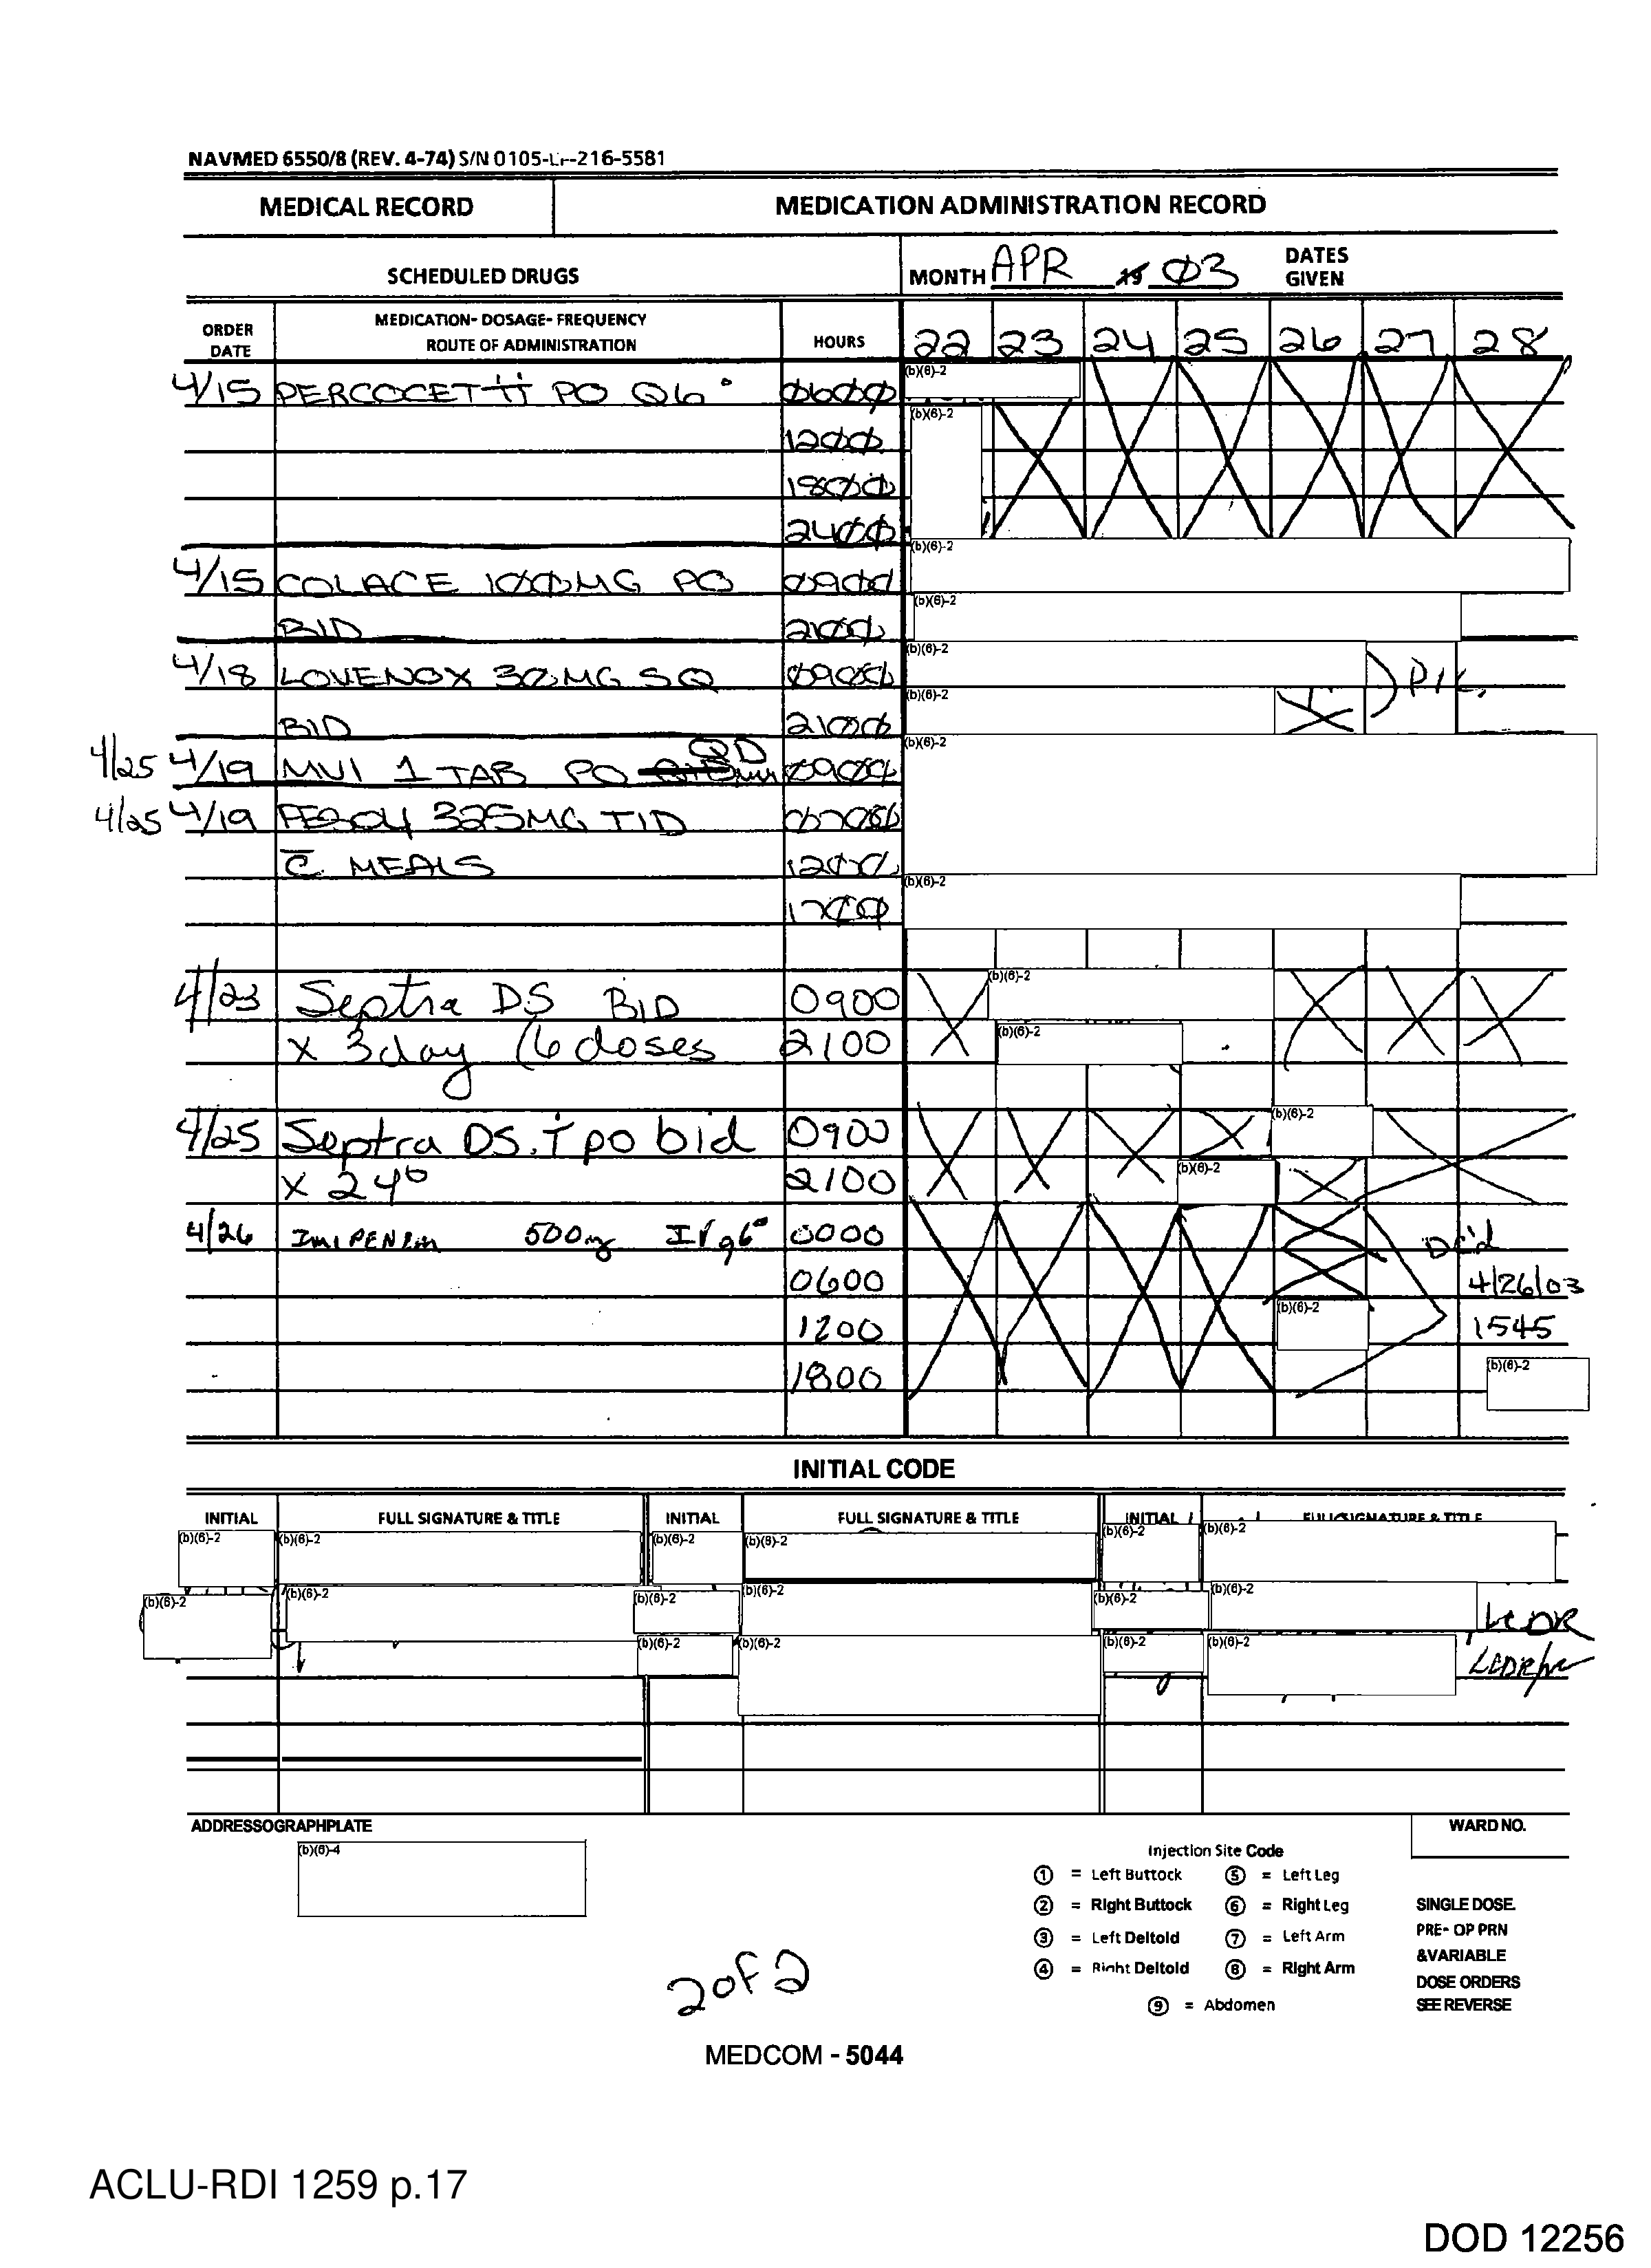 NAVMED 6550/8 (REV. 4-74) S/N 0105-LF-216-5581
MEDICAL RECORD MEDICATION ADMINISTRATION RECORD
SCHEDULED DRUGS MONTH APR 19 03 DATES GIVEN
ORDER DATE MEDICATION- DOSAGE- FREQUENCY ROUTE OF ADMINISTRATION HOURS 22 23 24 25 26 27 28
4/15 PERCOCET ii PO Q6° 0600 (b)(6)-2
1200 (b)(6)-2
1800
2400
4/15 COLACE 100MG PO 0900 (b)(6)-2
BID 2100 (b)(6)-2
4/18 LOVENOX 30MG SQ 0900 (b)(6)-2 D/C
BID 2100 (b)(6)-2
4/25 4/19 MVI 1 TAB PO QD 0900 (b)(6)-2
4/25 4/19 FESO4 325MG TID 0700
c̄ MEALS 1200
1700 (b)(6)-2
4/23 Septra DS BID 0900 (b)(6)-2
x 3day (6 doses 2100 (b)(6)-2
4/25 Septra DS. i po bid 0900 (b)(6)-2
x 24° 2100 (b)(6)-2
4/26 IMIPENEM 500mg IV q6° 0000 Dc'd
0600 4/26/03
1200 (b)(6)-2 1545
1800 (b)(6)-2
INITIAL CODE
INITIAL FULL SIGNATURE & TITLE INITIAL FULL SIGNATURE & TITLE INITIAL FULL SIGNATURE & TITLE
(b)(6)-2 (b)(6)-2 (b)(6)-2 (b)(6)-2 (b)(6)-2 (b)(6)-2
(b)(6)-2 (b)(6)-2 (b)(6)-2 (b)(6)-2 (b)(6)-2 (b)(6)-2 LCDR
(b)(6)-2 (b)(6)-2 (b)(6)-2 (b)(6)-2 LCDR/NC
ADDRESSOGRAPHPLATE WARD NO.
(b)(6)-4
Injection Site Code
1 = Left Buttock 5 = Left Leg
2 = Right Buttock 6 = Right Leg SINGLE DOSE.
3 = Left Deltoid 7 = Left Arm PRE- OP PRN
&VARIABLE
4 = Right Deltoid 8 = Right Arm DOSE ORDERS
9 = Abdomen SEE REVERSE
2 of 2
MEDCOM - 5044
ACLU-RDI 1259 p.17
DOD 12256